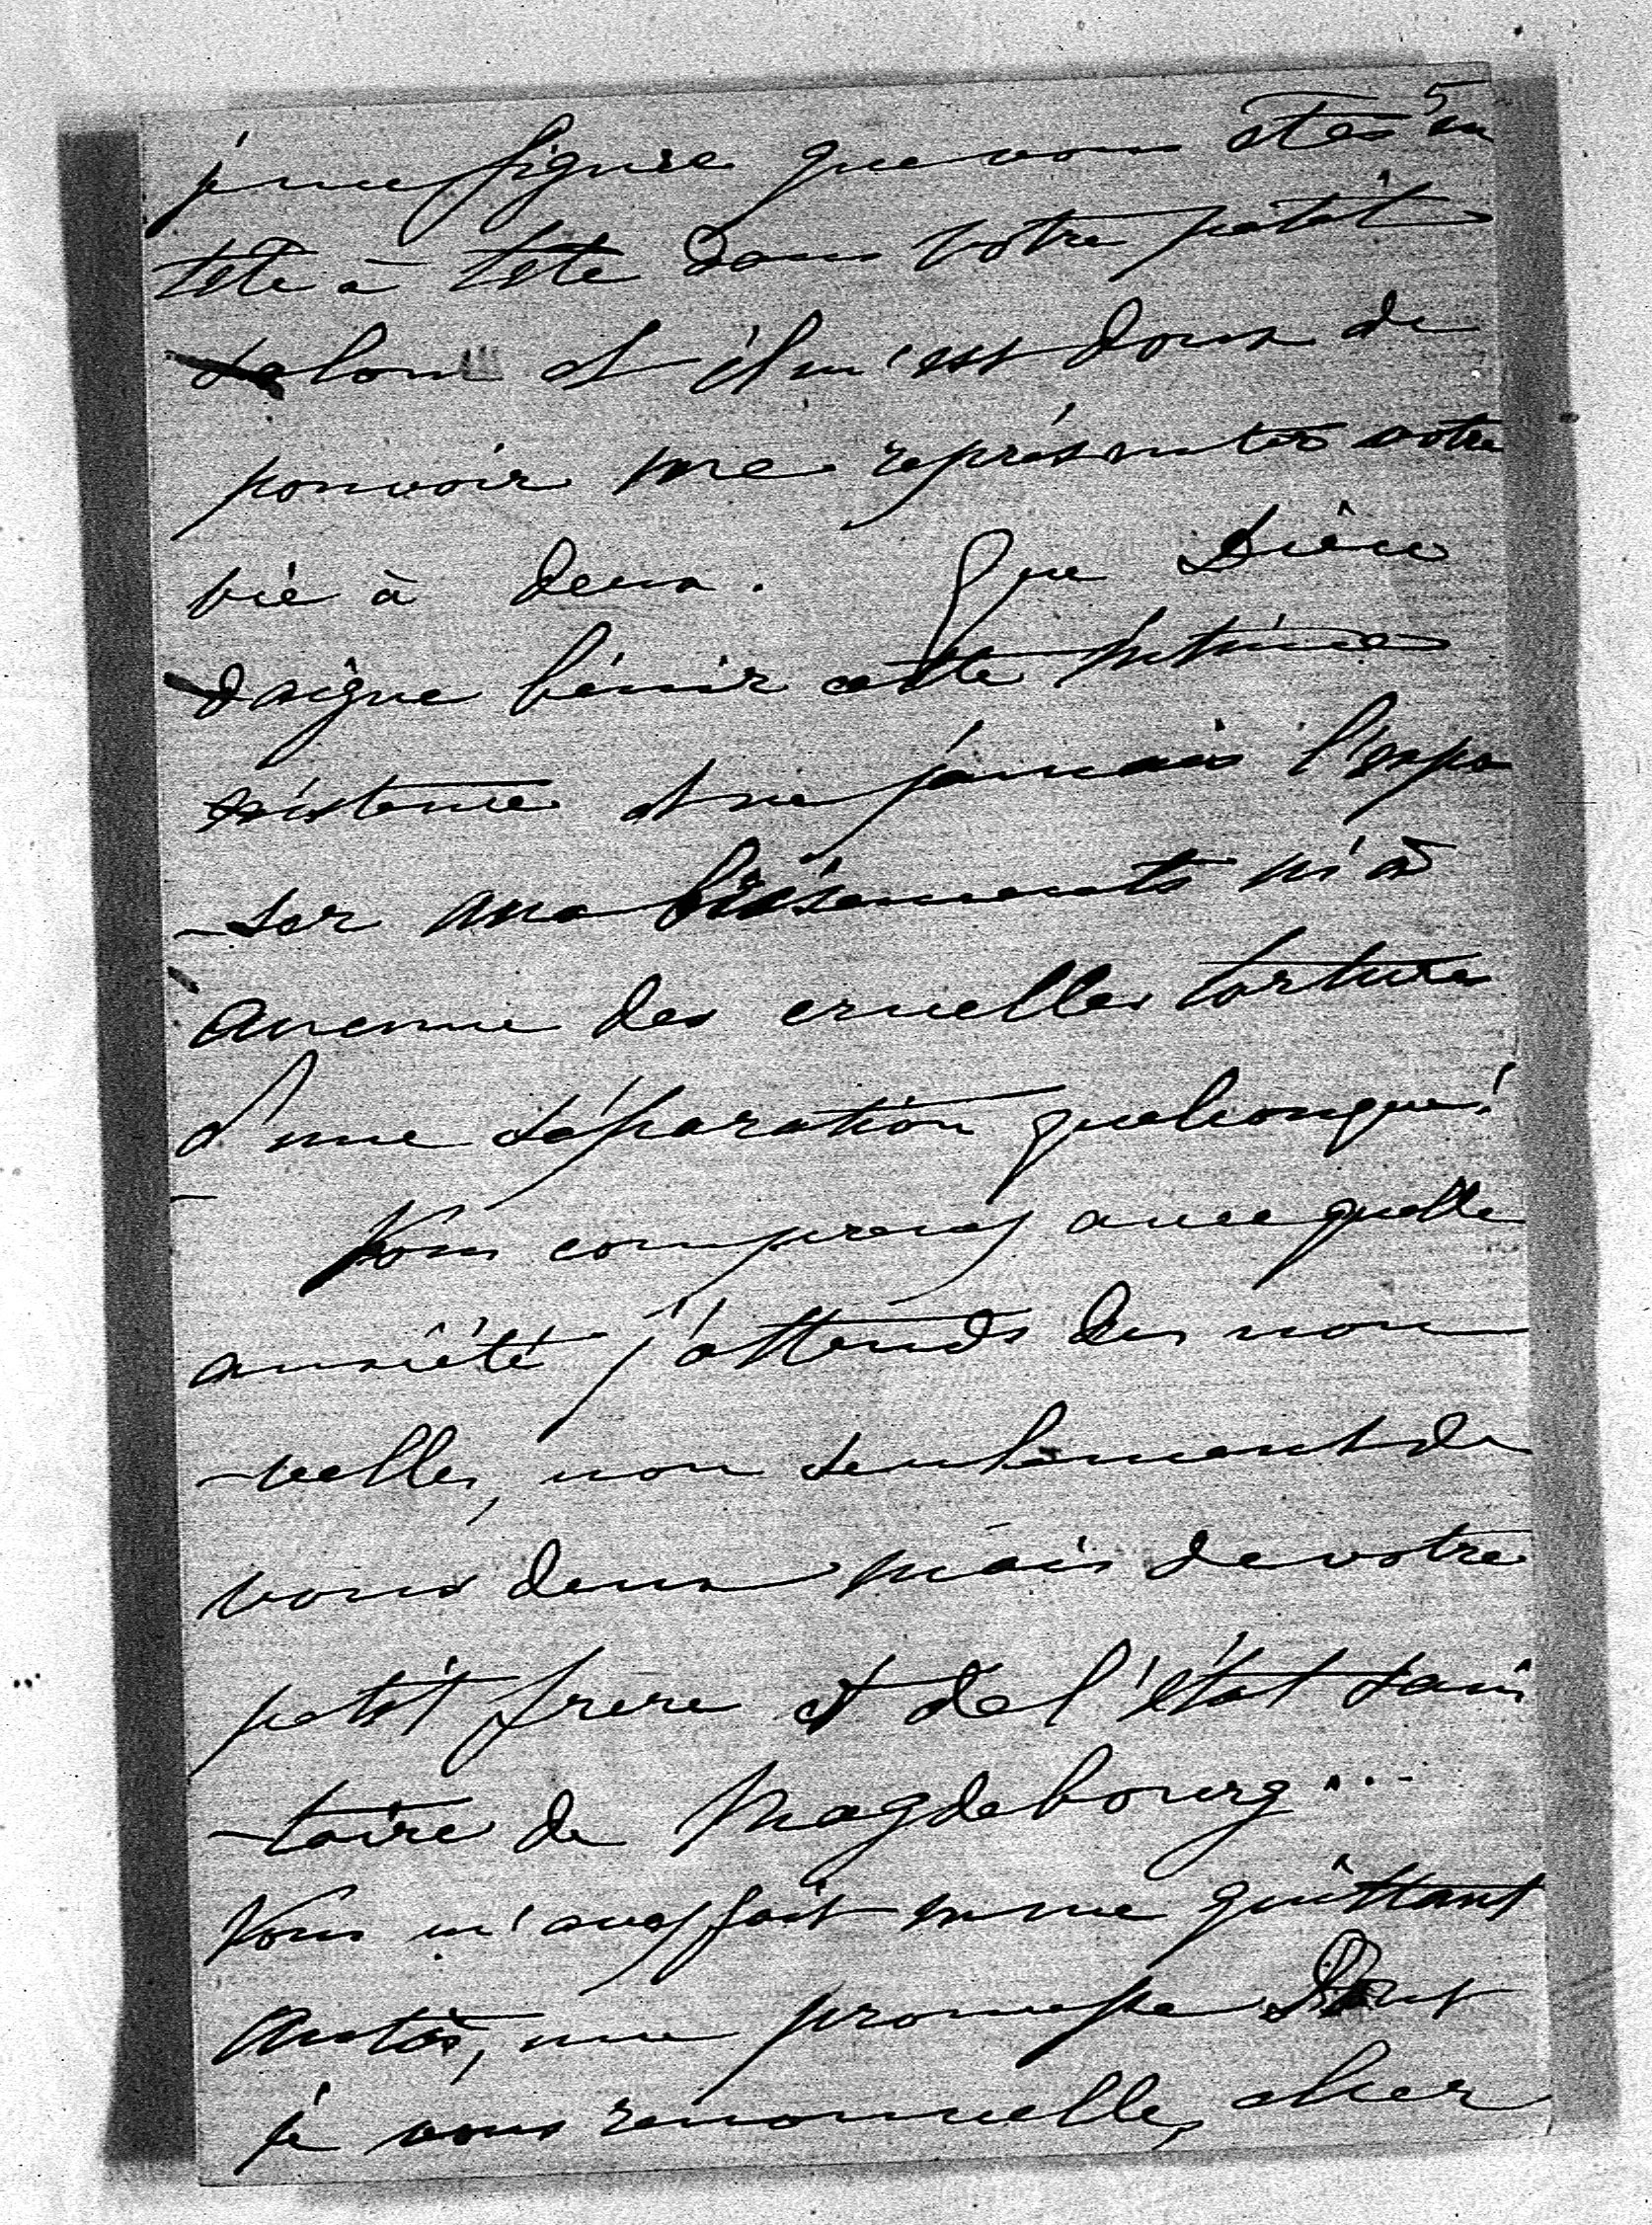 5
je me figure que vous êtes en
tête à tête dans votre petit
salon et il m'est doux de
pouvoir me représenter votre
vie à deux. Que Dieu
daigne bénir cette intime
existence et ne jamais l'expo
-ser aux brisements ni à
aucune des cruelles tortures
d'une séparation quelconque!
Vous comprenez avec quelle
anxiété j'attends des nou
-velles, non seulement de
vous deux mais de votre
petit frere et de l'état sani
-taire de Magdebourg...
Vous m'avez fait en me quittant
une promesse dont
je vous renouvelle, cher